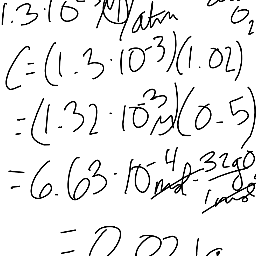 1.3·10 M/atm O2
C=(1.3·10^-3)(1.02)
=(1.32·10^-3 M)(0.5)
=6.63·10^-4 mol · 32gO 1mol
=0.02